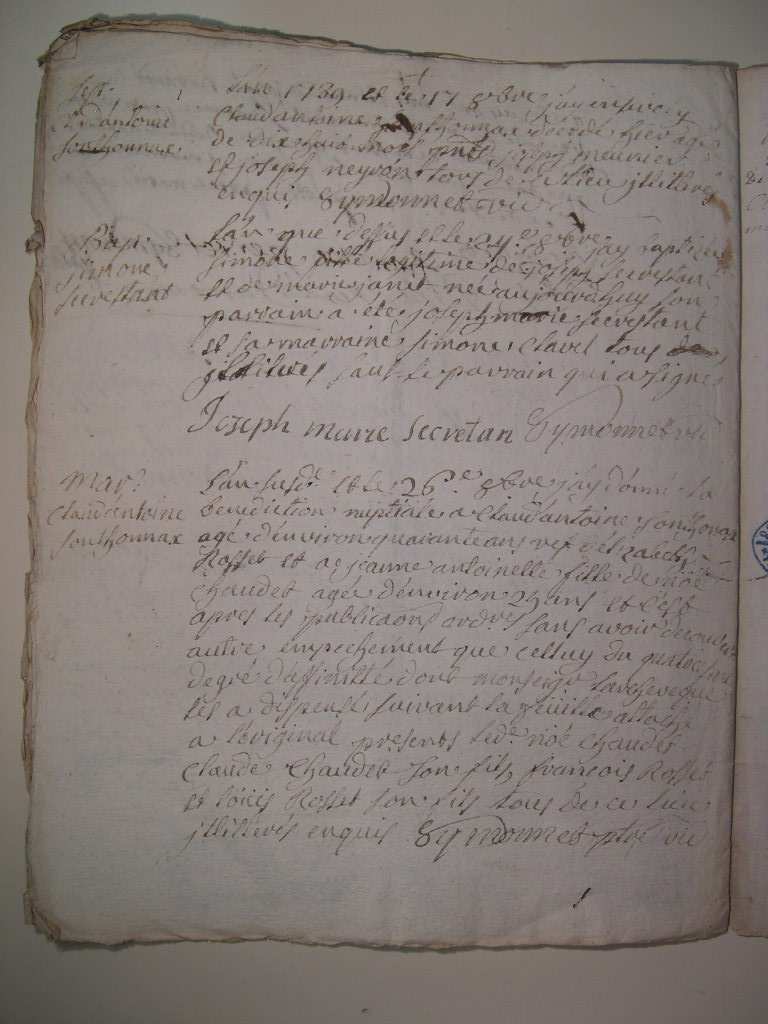 Sep.
Cl. dantoine
Sonthonnax
L'an 1739 et le 17 8bre j'ay enseveli
Claudantoine Sonthonnax décédé hier agé
de dix huit mois pnts joseph meunier
et joseph neyron tous de ce lieu jllitérés
enquis Gymonnet vic
Bap.
simone
secrestant
L'an que dessus et le 24e 8bre j'ay baptisé
simone fille legitime de joseph secrestant
et de marie janet née aujourdhuy son
parrain a été joseph marie secrestant
et sa marraine simone clavel tous
jllitérés sauf le parrain qui a signé
Joseph marie Secretan Gymonnet vic
Mar.
claudantoine
sonthonnax
L'an susd. et le 26e 8bre j'ay donné la
benediction nuptiale a claudantoine sonthonax
agé d'environ quarante ans vef d'elizabeth
Rosset et a jeanne antoinette fille de noé
chaudet agée d'environ 29 ans et c'est
apres les publicaons ordres sans avoir decouvert
autre empechement que celluy du quatrie
degré d'affinitté dont monseigr larcheveque
les a dispensé suivant la feuille attaché
a l'original presents led. noé chaudet
claude chaudet son fils françois Rosset
et Rosset son fils tous de ce lieu
jllitérés enquis Gymonnet ptre vic